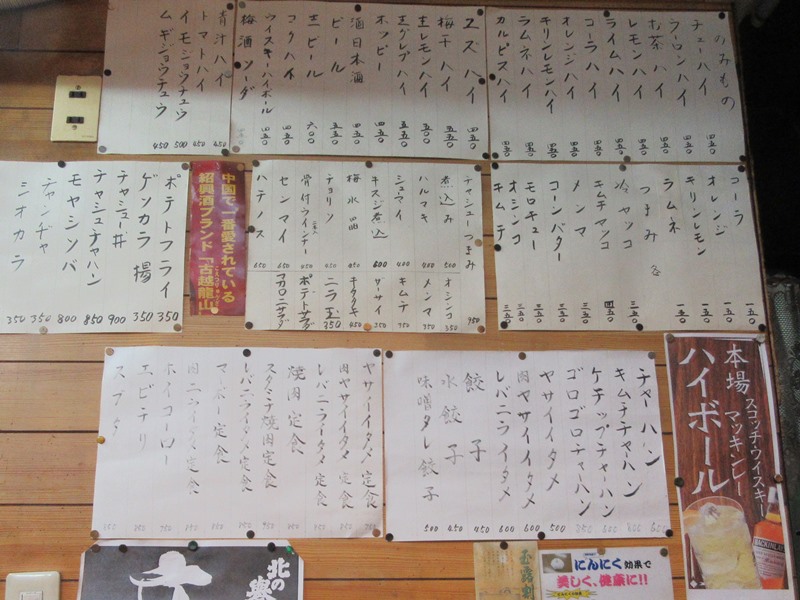 のみもの
チューハイ 四五〇
ウーロンハイ 四五〇
お茶ハイ 四五〇
レモンハイ 四五〇
ライムハイ 四五〇
コーラハイ 四五〇
オレンジハイ 四五〇
キリンレモンハイ 四五〇
ラムネハイ 四五〇
カルピスハイ 四五〇
ユズハイ 四五〇
梅干ハイ 四五〇
生レモンハイ 五五〇
生グレプハイ 五五〇
ホッピー 四五〇
酒日本酒 四五〇
ビール 五五〇
生ビール 六〇〇
コクハイ 四五〇
ウイスキーハイボール 四五〇
梅酒ソーダ
青汁ハイ 450
トマトハイ 450
イモジョウチュウ 500
ムギジョウチュウ 450
コーラ 一五〇
オレンジ 一五〇
キリンレモン 一五〇
ラムネ 一五〇
つまみ
冷ヤッコ 三五〇
キムチヤッコ 四五〇
メンマ 三五〇
コーンバター 三五〇
モロキュー 三五〇
オシンコ 三五〇
キムチ 三五〇
チャシューつまみ 450
煮込み 500
ハルマキ 400
シューマイ 400
キスジ煮込 600
梅水晶 450
チョリソ 450
骨付ウインナー 450
センマイ 650
ハチノス 650
オシンコ 350
メンマ 350
キムチ 350
ザーサイ 350
チクタクキ 450
ニラ玉 350
ポテトサラダ
マカロニサラダ
中国で一番愛されている
紹興酒ブランド「古越龍山」
ポテトフライ 350
ゲソカラ揚 350
チャシュー丼 900
チャシュチャハン 850
モヤシソバ 800
チャンヂャ 350
シオカラ 350
チャーハン 600
キムチチャーハン
ケチップチャーハン
ゴロゴロチャーハン
ヤサイイタメ 500
肉ヤサイイタメ 600
レバニライタメ 600
餃子 450
水餃子 450
味噌タレ餃子 500
ヤサーイイタメ定食
肉ヤサイイタメ定食
レバニライタメ定食
焼肉定食
スタミナ焼肉定食
レバニライタメ定食
マーボー定食
肉ニライタメ定食
ホイコーロー
エビチリ
スブタ
本場スコッチ・ウイスキー
マッキンレー
ハイボール
北の
にんにく効果で
美しく、健康に!!